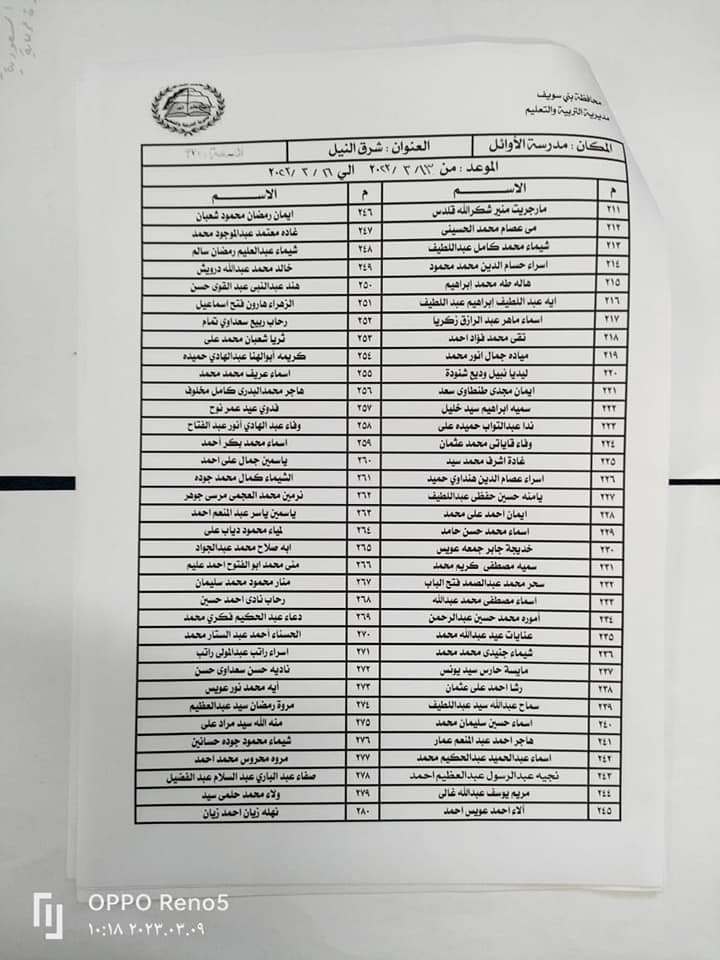 محافظة بني سويف
مديرية التربية والتعليم
المكان : مدرسة الأوائل العنوان : شرق النيل
الموعد : من ٣/١٣ /٢٠٢٣ الي ٣/١٦ /٢٠٢٣
م الاســـم م الاســـم
٢١١ مارجريت منير شكرالله قلدس ٢٤٦ ايمان رمضان محمود شعبان
٢١٢ مى عصام محمد الحسينى ٢٤٧ غاده معتمد عبدالموجود محمد
٢١٣ شيماء محمد كامل عبداللطيف ٢٤٨ شيماء عبدالعليم رمضان سالم
٢١٤ اسراء حسام الدين محمد محمود ٢٤٩ خالد محمد عبدالله درويش
٢١٥ هاله طه محمد ابراهيم ٢٥٠ هند عبدالنبى عبد القوى حسن
٢١٦ ايه عبد اللطيف ابراهيم عبد اللطيف ٢٥١ الزهراء هارون فتح اسماعيل
٢١٧ اسماء ماهر عبد الرازق زكريا ٢٥٢ رحاب ربيع سعداوي تمام
٢١٨ تقى محمد فؤاد احمد ٢٥٣ ثريا شعبان محمد على
٢١٩ مياده جمال انور محمد ٢٥٤ كريمه أبوالهنا عبدالهادي حميده
٢٢٠ ليديا نبيل وديع شنودة ٢٥٥ اسماء عريف محمد محمد
٢٢١ ايمان مجدى طنطاوى سعد ٢٥٦ هاجر محمدالبدرى كامل مخلوف
٢٢٢ سميه ابراهيم سيد خليل ٢٥٧ فدوي عيد عمر نوح
٢٢٣ ندا عبدالتواب حميده على ٢٥٨ وفاء عبد الهادي أنور عبد الفتاح
٢٢٤ وفاء قاياتى محمد عثمان ٢٥٩ اسماء محمد بكر أحمد
٢٢٥ غادة اشرف محمد سيد ٢٦٠ ياسمين جمال على احمد
٢٢٦ اسراء عصام الدين هنداوي حميد ٢٦١ الشيماء كمال محمد جوده
٢٢٧ يامنه حسين حفظى عبداللطيف ٢٦٢ نرمين محمد العجمى مرسى جوهر
٢٢٨ ايمان احمد على محمد ٢٦٣ ياسمين ياسر عبد المنعم احمد
٢٢٩ اسماء محمد حسن حامد ٢٦٤ لمياء محمود دياب على
٢٣٠ خديجة جابر جمعه عويس ٢٦٥ ايه صلاح محمد عبدالجواد
٢٣١ سميه مصطفى كريم محمد ٢٦٦ منى محمد ابو الفتوح احمد عليم
٢٣٢ سحر محمد عبدالصمد فتح الباب ٢٦٧ منار محمود محمد سليمان
٢٣٣ اسماء مصطفى محمد عبدالله ٢٦٨ رحاب نادى احمد حسين
٢٣٤ أموره محمد حسين عبدالرحمن ٢٦٩ دعاء عبد الحكيم فكري محمد
٢٣٥ عنايات عيد عبدالله محمد ٢٧٠ الحسناء أحمد عبد الستار محمد
٢٣٦ شيماء جنيدى محمد محمد ٢٧١ اسراء راتب عبدالمولى راتب
٢٣٧ مايسة حارس سيد يونس ٢٧٢ ناديه حسن سعداوى حسن
٢٣٨ رشا احمد على عثمان ٢٧٣ أيه محمد نور عويس
٢٣٩ سماح عبدالله سيد عبداللطيف ٢٧٤ مروة رمضان سيد عبدالعظيم
٢٤٠ اسماء حسين سليمان محمد ٢٧٥ منه الله سيد مراد على
٢٤١ هاجر احمد عبد المنعم عمار ٢٧٦ شيماء محمود جوده حسانين
٢٤٢ اسماء عبدالحميد عبدالحكيم محمد ٢٧٧ مروه محروس محمد احمد
٢٤٣ نجيه عبدالرسول عبدالعظيم احمد ٢٧٨ صفاء عبد الباري عبد السلام عبد الفضيل
٢٤٤ مريم يوسف عبدالله غالى ٢٧٩ ولاء محمد حلمى سيد
٢٤٥ آلاء احمد عويس احمد ٢٨٠ نهله زيان احمد زيان
OPPO Reno5
١٠:١٨ ٢٠٢٣.٠٣.٠٩